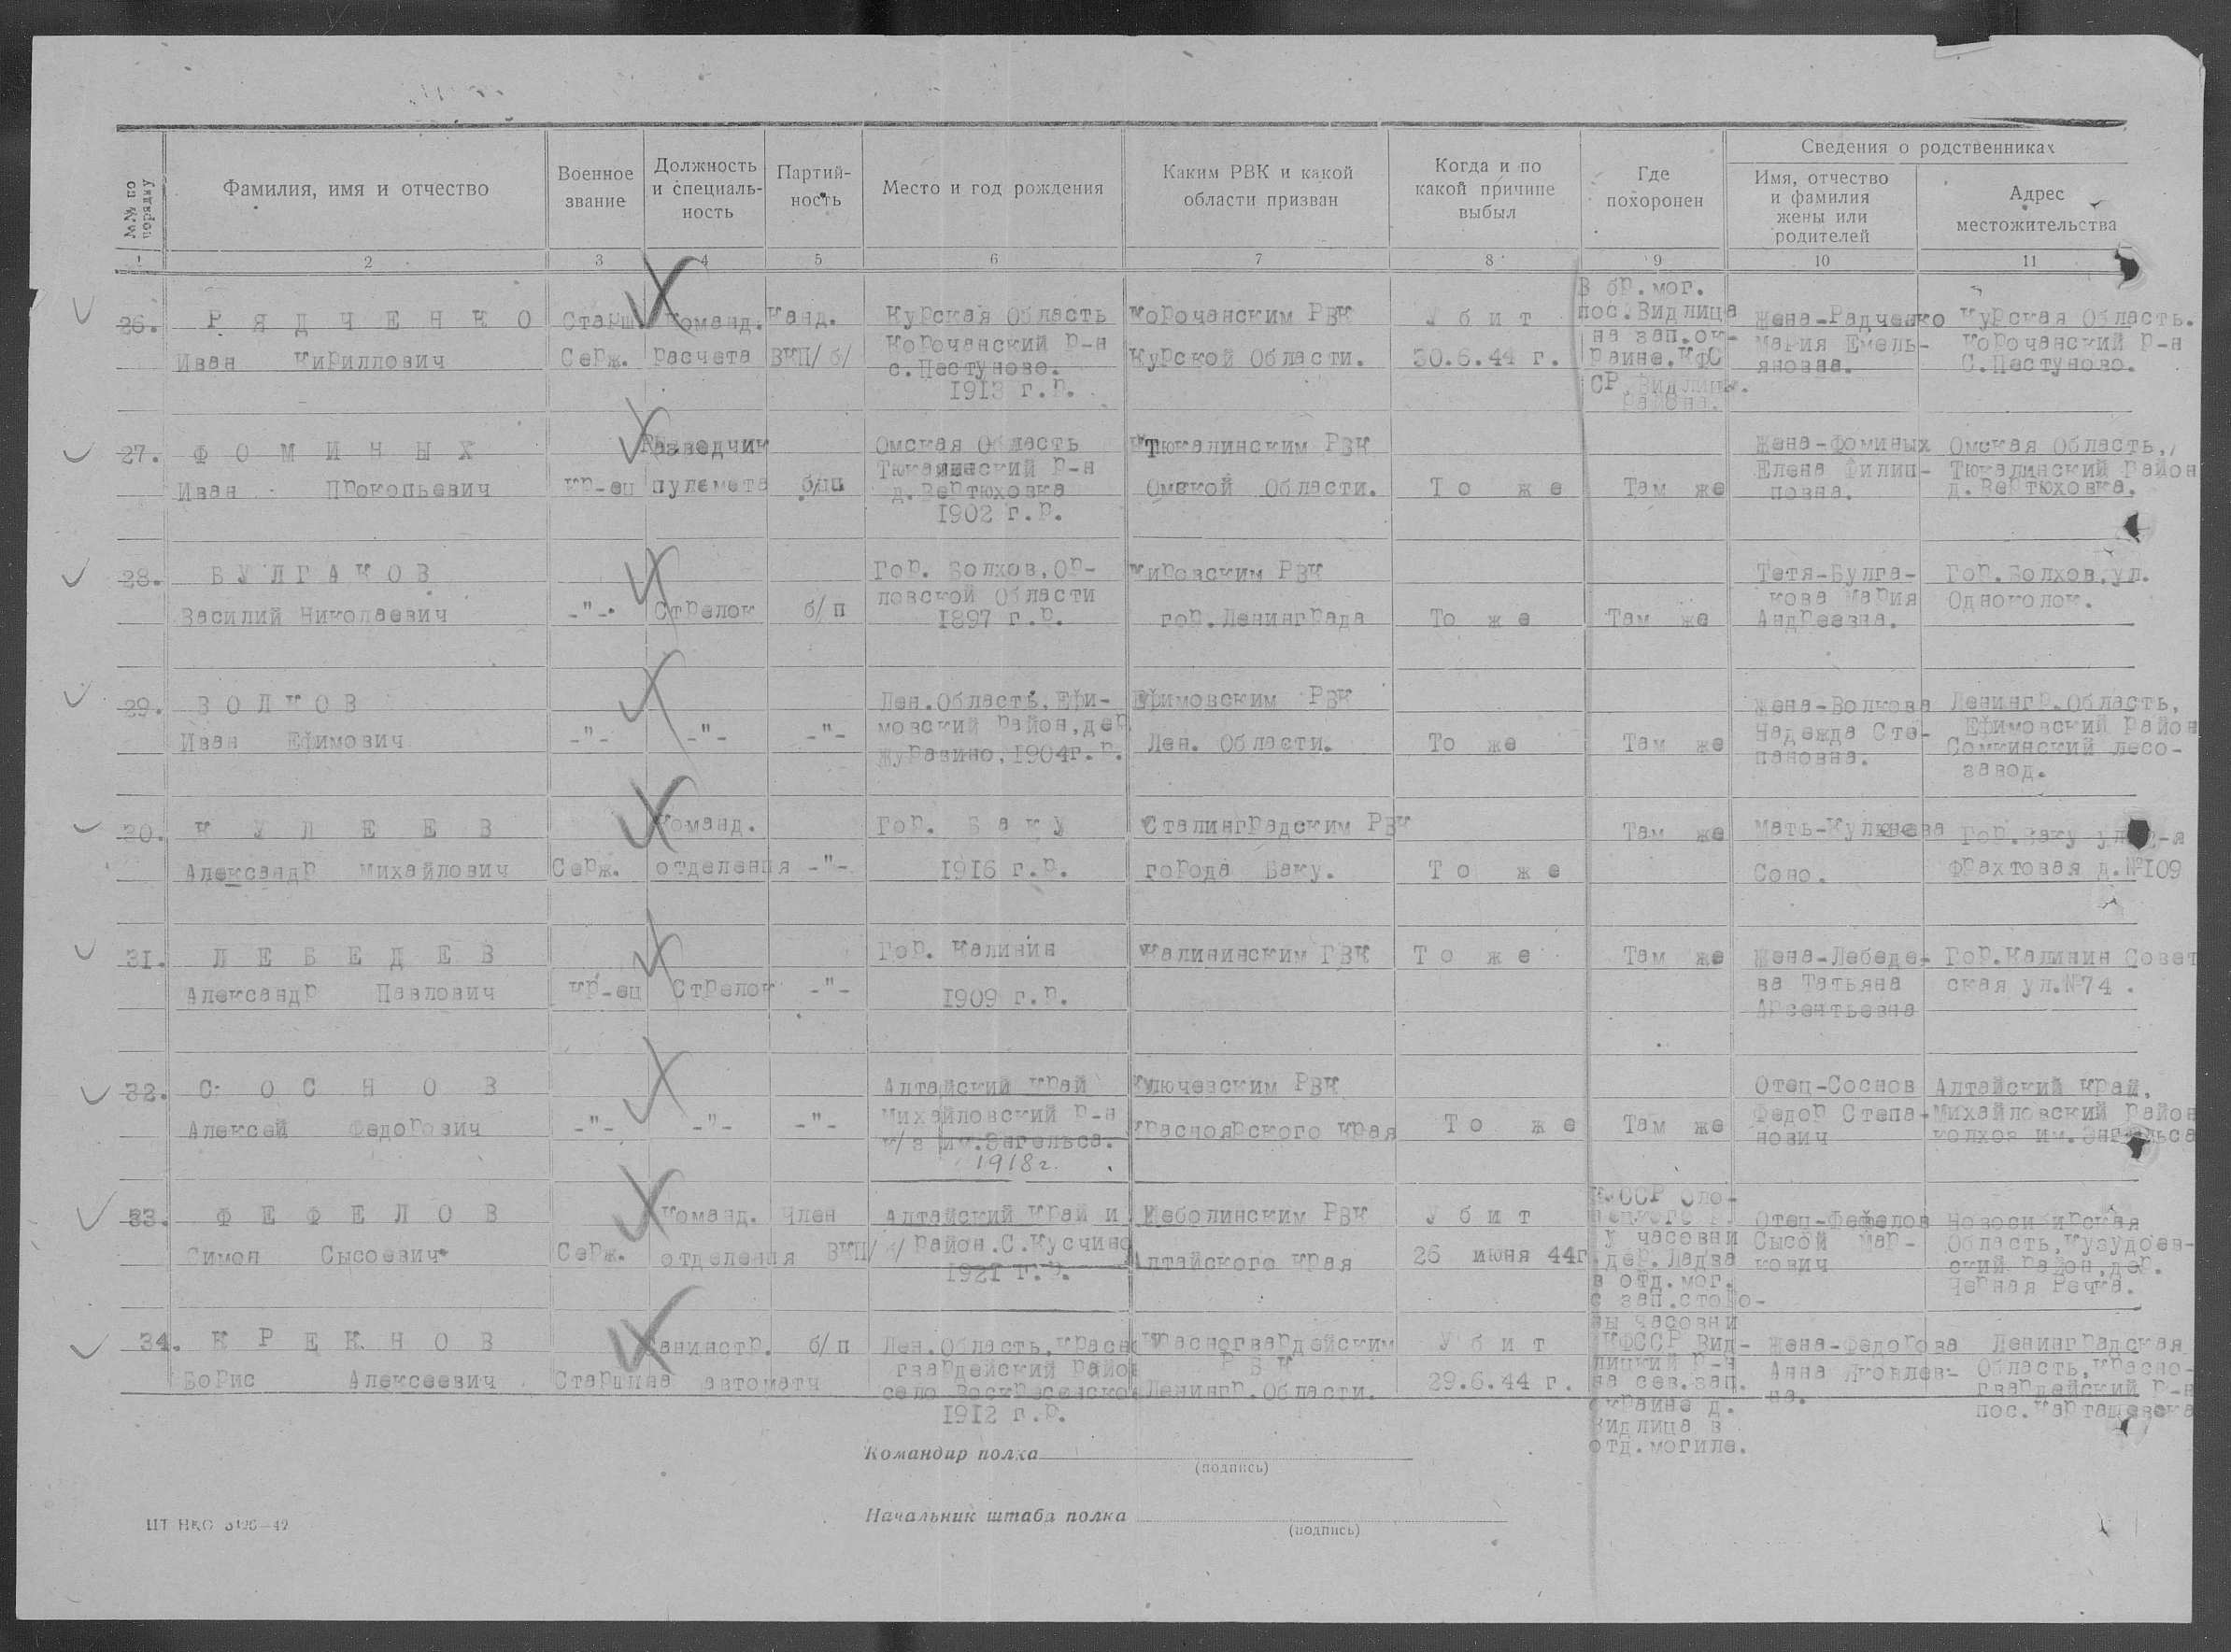 №№ по порядку
Фамилия, имя и отчество
Военное звание
Должность и специаль-
ность
Партий-
ность
Место и год рождения
Каким РВК и какой области призван
Когда и по какой причине выбыл
Где похоронен
Сведения о родственниках
Имя, отчество и фамилия жены или родителей
Адрес местожительства
1 2 3 4 5 6 7 8 9 10 11
26. РЯДЧЕНКО
Иван Кириллович
Старш. Серж.
Команд. расчета
Канд. ВКП/б/
Курская Область
Корочанский р-н
с.Пестуново.
1913 г.р.
Корочанским РВК
Курской Области.
Убит
30.6.44 г.
В бр.мог.
пос.Видлица
на зап.ок-
раине.КФС
СР.Видлицк.
района.
Жена-Радченко
Мария Емель-
яновна.
Курская Область.
Корочанский р-н
С.Пестуново.
27. ФОМИНЫХ
Иван Прокопьевич
кр-ец
Наводчик
пулемета
б/п
Омская Область
Тюкалинский р-н
д.Вертюховка
1902 г.р.
Тюкалинским РВК
Омской Области.
То же
Там же
Жена-Фоминых
Елена Филип-
повна.
Омская Область,
Тюкалинский район
д.Вертюховка.
28. БУЛГАКОВ
Василий Николаевич
-"-
Стрелок
б/п
Гор. Болхов,Ор-
ловской Области
1897 г.р.
Кировским РВК
гор.Ленинграда
То же
Там же
Тетя-Булга-
кова Мария
Андреевна.
Гор.Болхов,ул.
Одноколок.
29. ВОЛКОВ
Иван Ефимович
-"-
-"-
-"-
Лен.Область,Ефи-
мовский район,дер
Журавино,1904г.р.
Ефимовским РВК
Лен. Области.
То же
Там же
Жена-Волкова
Надежда Сте-
пановна.
Ленингр.Область,
Ефимовский район
Сомкинский лесо-
завод.
30. КУЛЕЕВ
Александр Михайлович
Серж.
Команд.
отделения
-"-
Гор. Баку
1916 г.р.
Сталинградским РВК
города Баку.
То же
Там же
Соно.
Фрахтовая д.№109
31. ЛЕБЕДЕВ
Александр Павлович
кр-ец
Стрелок
-"-
Гор. Калинин
1909 г.р.
Калининским ГВК
То же
Там же
Жена-Лебеде-
ва Татьяна
Арсентьевна
Гор.Калинин Совет
ская ул.№74 .
32. СОСНОВ
Алексей Федорович
-"-
-"-
-"-
Алтайский край
Михайловский р-н
к/з им.Энгельса.
1918г.
Ключевским РВК
Красноярского края
То же
Там же
Отец-Соснов
Федор Степа-
нович
Алтайский край,
Михайловский район
колхоз им.Энгельса
33. ФЕФЕЛОВ
Симон Сысоевич
Серж.
Команд.
отделения
Член
ВКП/б/
Алтайский край и
район.С.Кусчино
1921 г.р.
Шеболинским РВК
Алтайского края
Убит
26 июня 44г
у часовни
дер.Ладва
в отд.мог.
с зап.сторо-
ны часовни
Отец-Фефелов
Сысой Мар-
кович
Новосибирская
Область,Кузудеев-
ский район,дер.
Черная Речка.
34. КРЕКНОВ
Борис Алексеевич
Старшина
Санинстр.
автоматч
б/п
Лен.Область,Красно
гвардейский район
село Воскресенско
1912 г.р.
Красногвардейским
РВК
Ленингр.Области.
Убит
29.6.44 г.
КФССР Вид-
лицкий р-н
на сев.зап.
окраине д.
Видлица в
отд.могиле.
Жена-Федорова
Анна Яковлев-
на.
Ленинградская
Область,Красно-
гвардейский р-н
пос.Карташевска
Командир полка
(подпись)
Начальник штаба полка
(подпись)